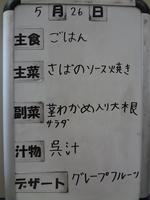 5月26日
主食 ごはん
主菜 さばのソース焼き
副菜 茎わかめ入り大根
サラダ
汁物 呉汁
デザート グレープフルーツ